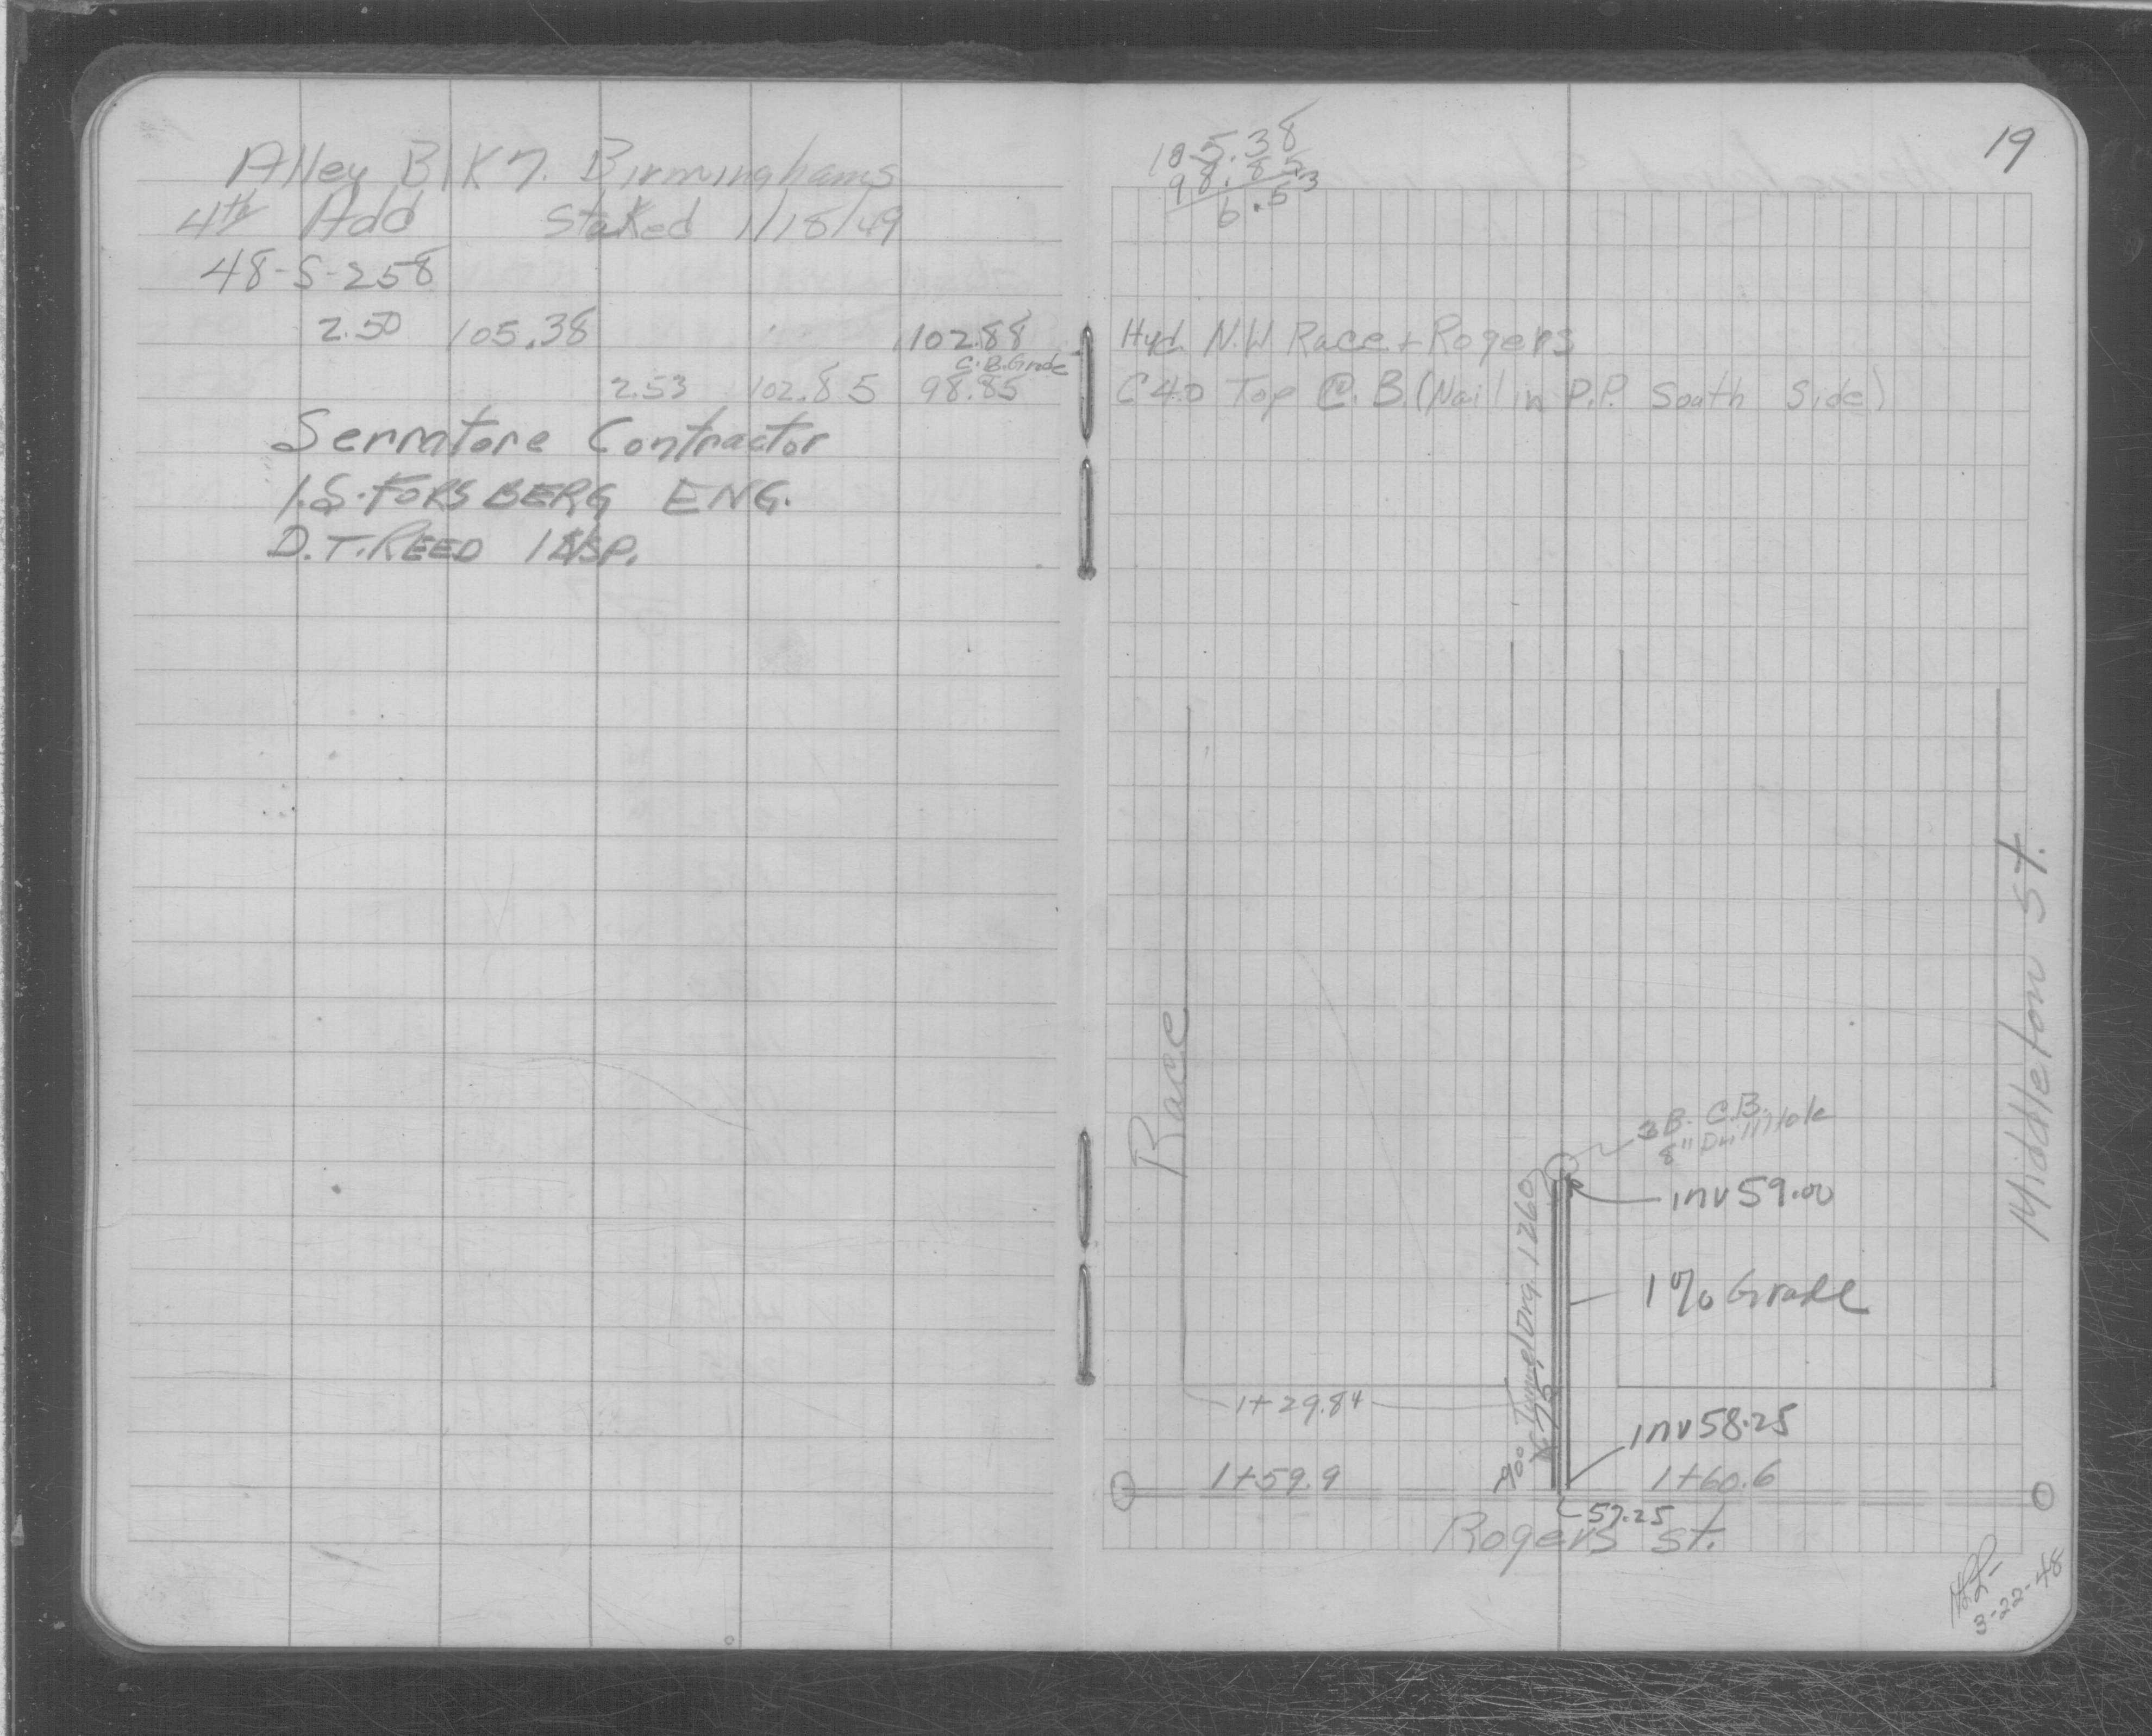 Alley Blk 7. Birminghams
4th Add Staked 1/18/49
48-S-258
2.50 105.38 102.88
C.B. Grade
2.53 102.85 98.85
Serratore Contractor
I.S. FORSBERG ENG.
D.T. REED INSP.
19
105.38
98.85
6.53
Hyd. N.W Race + Rogers
C 4.0 Top C.B. (Nail in P.P. South Side)
Race
Middleton St.
3B. C.B.
8" Drill Hole
inv 59.00
1% Grade
1+29.84
inv 58.25
1+59.9
1+60.6
57.25
Rogers St.
3-22-48